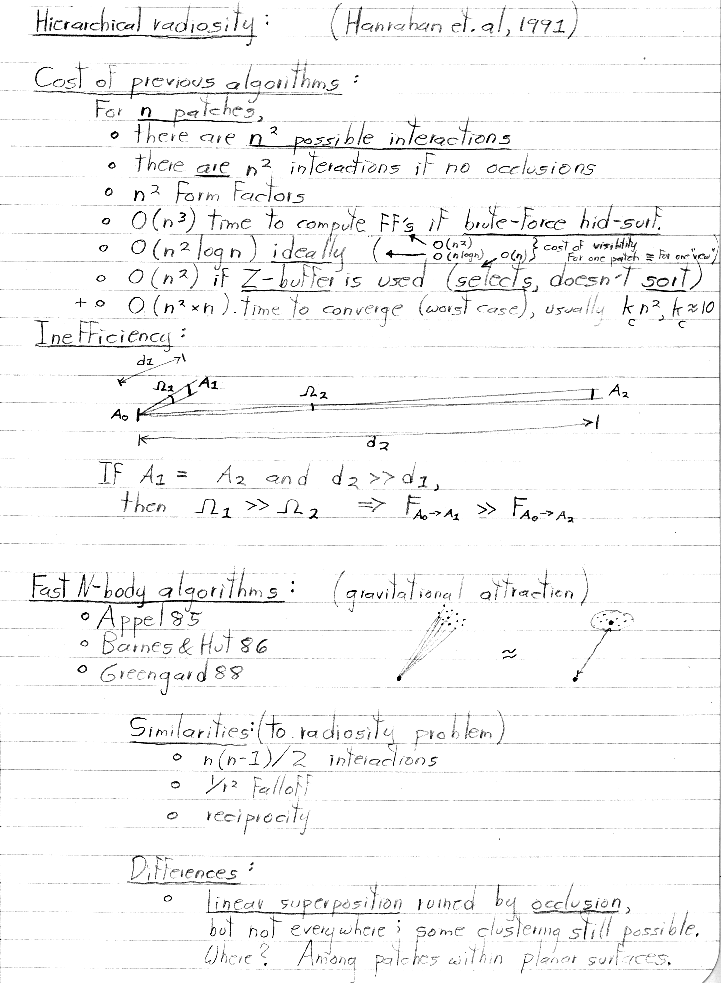 Hierarchical radiosity: (Hanrahan et. al, 1991)
Cost of previous algorithms:
For n patches,
o there are n² possible interactions
o there are n² interactions if no occlusions
o n² Form Factors
o O(n³) time to compute FF's if brute-force hid-surf.
o O(n² log n) ideally ( O(n²) O(n log n) O(n) } cost of visibility For one patch ≡ For one "view")
o O(n²) if Z-buffer is used (selects, doesn't sort)
+ o O(n² × n). time to converge (worst case), usually k_c n², k_c ≈ 10
Inefficiency:
d1
Ω1 A1
Ω2 A2
A0
d2
If A1 = A2 and d2 >> d1,
then Ω1 >> Ω2 ⇒ F_A0→A1 >> F_A0→A2
Fast N-body algorithms: (gravitational attraction)
o Appel 85
o Barnes & Hut 86
≈
o Greengard 88
Similarities: (to radiosity problem)
o n(n-1)/2 interactions
o 1/r² falloff
o reciprocity
Differences:
o linear superposition ruined by occlusion,
but not everywhere; some clustering still possible.
Where? Among patches within planar surfaces.